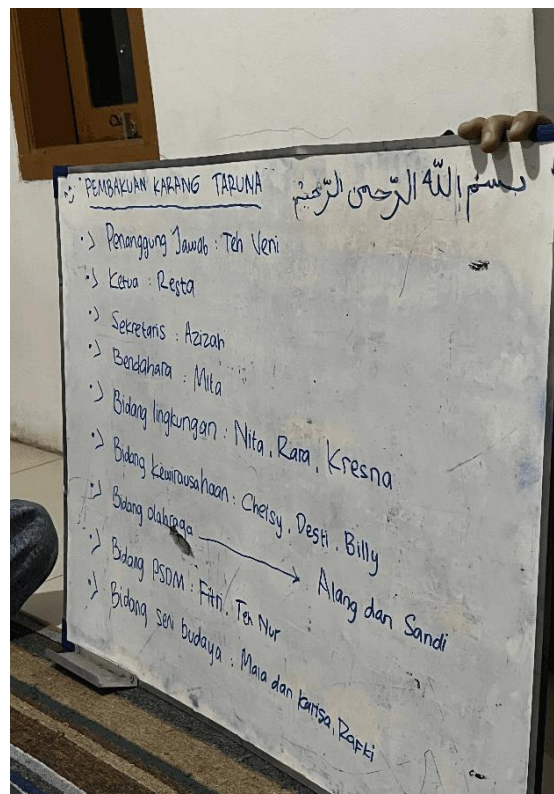 PEMBAKUAN KARANG TARUNA
بسم الله الرحمن الرحيم
•) Penanggung Jawab : Teh Veni
•) Ketua : Resta
•) Sekretaris : Azizah
•) Bendahara : Mita
•) Bidang lingkungan : Nita, Rara, Kresna
•) Bidang kewirausahaan : Chelsy, Desti, Billy
•) Bidang olahraga → Alang dan Sandi
•) Bidang PSDM : Fitri, Teh Nur
•) Bidang seni budaya : Maia dan Karisa, Rafki